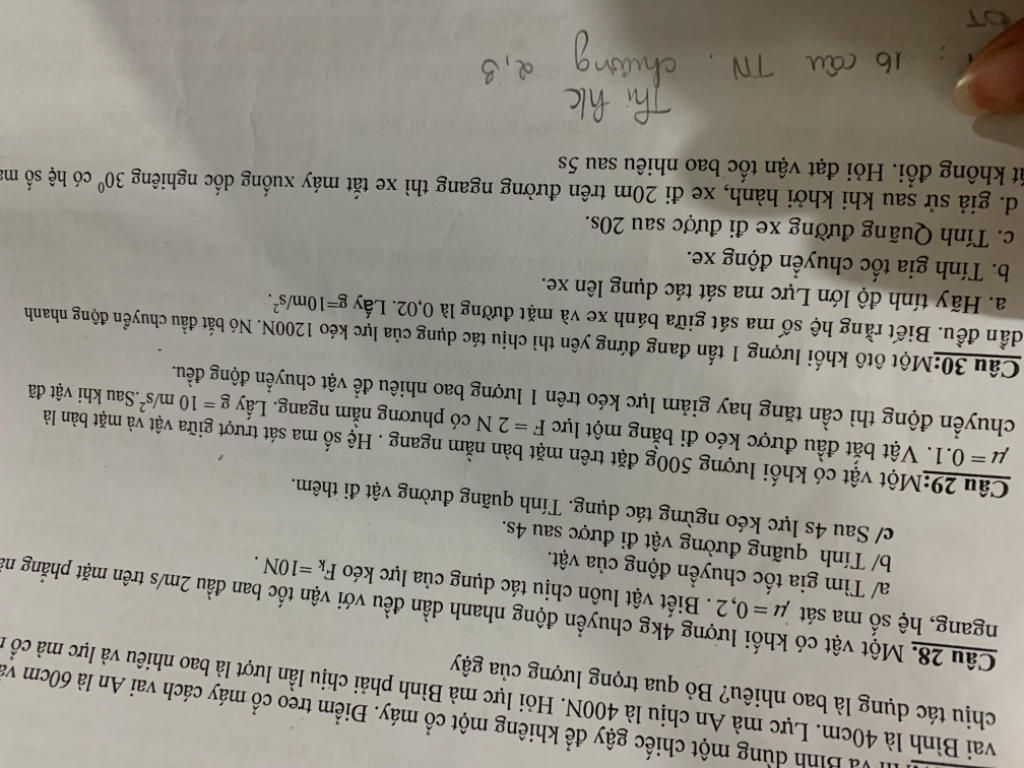 và Bình dùng một chiếc gậy để khiêng một cỗ máy. Điểm treo cỗ máy cách vai An là 60cm
vai Bình là 40cm. Lực mà An chịu là 400N. Hỏi lực mà Bình phải chịu lần lượt là bao nhiêu và lực mà cỗ
chịu tác dụng là bao nhiêu? Bỏ qua trọng lượng của gậy
Câu 28. Một vật có khối lượng 4kg chuyển động nhanh dần đều với vận tốc ban đầu 2m/s trên mặt phẳng
ngang, hệ số ma sát μ = 0,2 . Biết vật luôn chịu tác dụng của lực kéo F_K =10N .
a/ Tìm gia tốc chuyển động của vật.
b/ Tính quãng đường vật đi được sau 4s.
c/ Sau 4s lực kéo ngừng tác dụng. Tính quãng đường vật đi thêm.
Câu 29:Một vật có khối lượng 500g đặt trên mặt bàn nằm ngang . Hệ số ma sát trượt giữa vật và mặt bàn là
μ = 0.1. Vật bắt đầu được kéo đi bằng một lực F = 2 N có phương nằm ngang. Lấy g = 10 m/s².Sau khi vật đã
chuyển động thì cần tăng hay giảm lực kéo trên 1 lượng bao nhiêu để vật chuyển động đều.
Câu 30:Một ôtô khối lượng 1 tấn đang đứng yên thì chịu tác dụng của lực kéo 1200N. Nó bắt đầu chuyển động nhanh
dần đều. Biết rằng hệ số ma sát giữa bánh xe và mặt đường là 0,02. Lấy g=10m/s².
a. Hãy tính độ lớn Lực ma sát tác dụng lên xe.
b. Tính gia tốc chuyển động xe.
c. Tính Quãng đường xe đi được sau 20s.
d. giả sử sau khi khởi hành, xe đi 20m trên đường ngang thì xe tắt máy xuống dốc nghiêng 30⁰ có hệ số ma
không đổi. Hỏi đạt vận tốc bao nhiêu sau 5s
Thi hk
: 16 câu TN . chương 2,3
ĐT